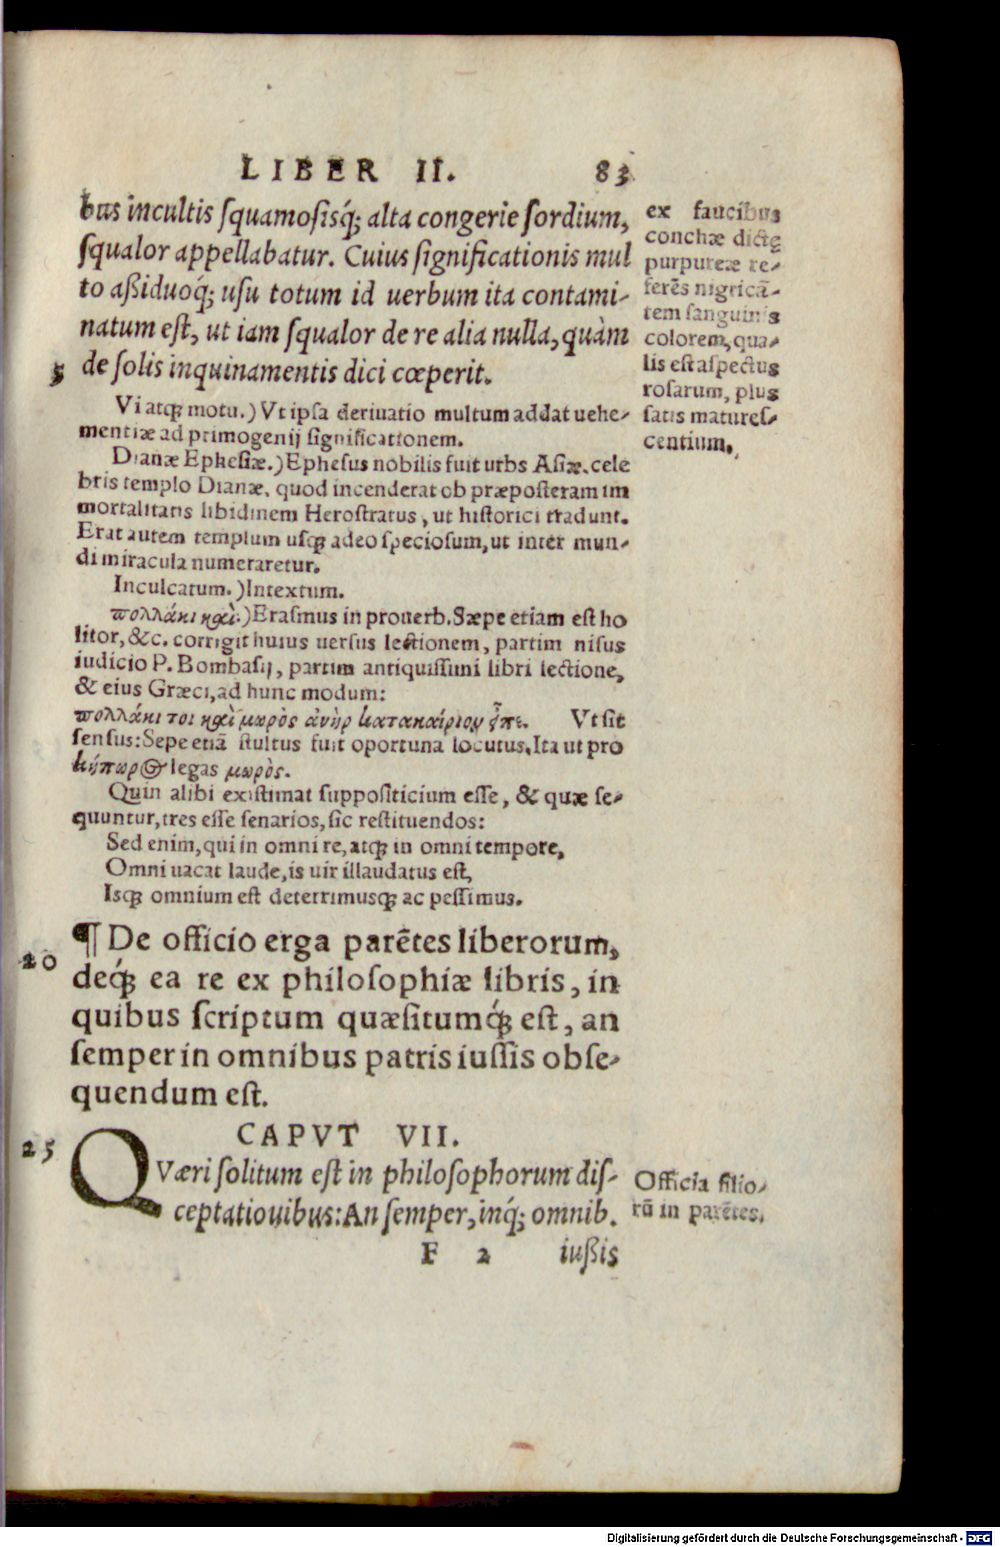 LIBER II. 83
bus incultis ſquamoſisq́; alta congerie ſordium,
ſqualor appellabatur. Cuius ſignificationis mul
to aßiduoq́; uſu totum id uerbum ita contami-
natum eſt, ut iam ſqualor de re alia nulla, quàm
5 de ſolis inquinamentis dici cœperit.
ex faucibus
conchæ dictę
purpureæ re-
ferẽs nigricã-
tem ſanguinis
colorem, qua-
lis eſt aſpectus
roſarum, plus
ſatis matureſ-
centium.
Vi atqꝫ motu.) Vt ipſa deriuatio multum addat uehe-
mentiæ ad primogenij ſignificationem.
Dianæ Epheſiæ.) Epheſus nobilis fuit urbs Aſiæ, cele
bris templo Dianæ, quod incenderat ob præpoſteram im
mortalitatis libidinem Heroſtratus, ut hiſtorici tradunt.
Erat autem templum uſqꝫ adeo ſpecioſum, ut inter mun-
di miracula numeraretur.
Inculcatum.) Intextum.
πολλάκι καὶ.) Eraſmus in prouerb. Sæpe etiam eſt ho
litor, &c. corrigit huius uerſus lectionem, partim niſus
iudicio P. Bombaſij, partim antiquiſſimi libri lectione,
& eius Græci, ad hunc modum:
πολλάκι τοι καὶ μωρὸς ἀνὴρ κατακαίριον εἶπε. Vt ſit
ſenſus: Sepe etiã ſtultus fuit oportuna locutus. Ita ut pro
κήπωρος legas μωρὸς.
Quin alibi exiſtimat ſuppoſiticium eſſe, & quæ ſe-
quuntur, tres eſſe ſenarios, ſic reſtituendos:
Sed enim, qui in omni re, atqꝫ in omni tempore,
Omni uacat laude, is uir illaudatus eſt,
Isqꝫ omnium eſt deterrimusqꝫ ac peſſimus.
¶ De officio erga parẽtes liberorum,
20 deq́ꝫ ea re ex philoſophiæ libris, in
quibus ſcriptum quæſitumq́ꝫ eſt, an
ſemper in omnibus patris iuſſis obſe-
quendum eſt.
CAPVT VII.
25 QVæri ſolitum eſt in philoſophorum diſ-
ceptatiouibus: An ſemper, inq́; omnib.
Officia filio-
rũ in parẽtes.
F 2 iußis
Digitalisierung gefördert durch die Deutsche Forschungsgemeinschaft - DFG